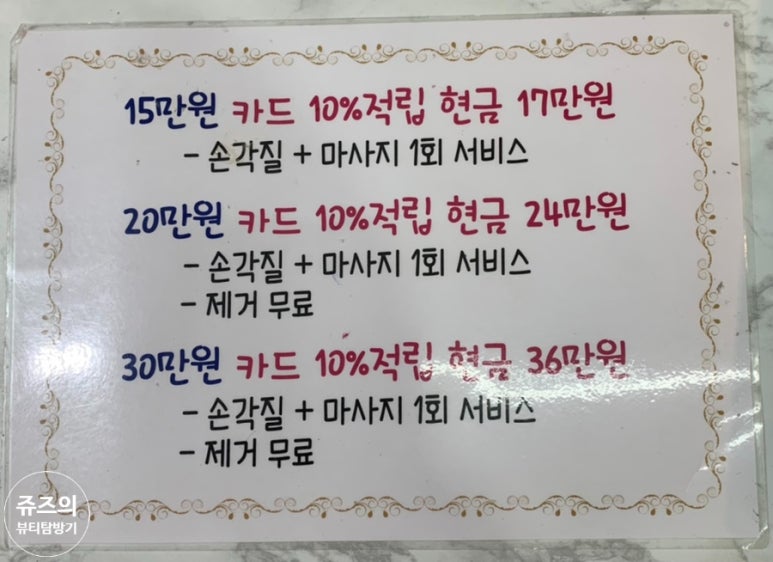 15만원 카드 10%적립 현금 17만원
- 손각질 + 마사지 1회 서비스
20만원 카드 10%적립 현금 24만원
- 손각질 + 마사지 1회 서비스
- 제거 무료
30만원 카드 10%적립 현금 36만원
- 손각질 + 마사지 1회 서비스
- 제거 무료
쥬즈의
뷰티탐방기